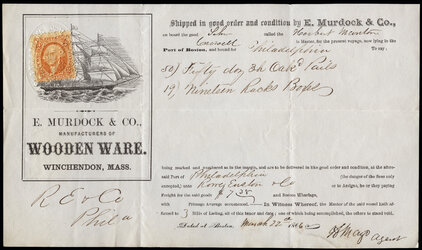 Shipped in good order and condition by E. Murdock & Co.,
on board the good called the
Master, for the present voyage, now lying in the
Port of Boston, and bound for Philadelphia To say:
50) Fifty doz, Oak Pails
19) Nineteen Racks
E. MURDOCK & CO.,
MANUFACTURERS OF
WOODEN WARE.
WINCHENDON, MASS.
being marked and numbered as in the margin, and are to be delivered in the like good order and condition, at the afore-
said Port of Philadelphia (the danger of the Seas only
excepted,) unto & Co or to Assigns, he or they paying
Freight for the said goods and Boston Wharfage,
with Primage Average accustomed. In Witness Whereof, the Master of the said vessel hath af-
firmed to 3 Bills of Lading, all of this tenor and date; one of which being accomplished, the others to stand void.
Dated at Boston, March 22nd
Agent
R E & Co
Phila